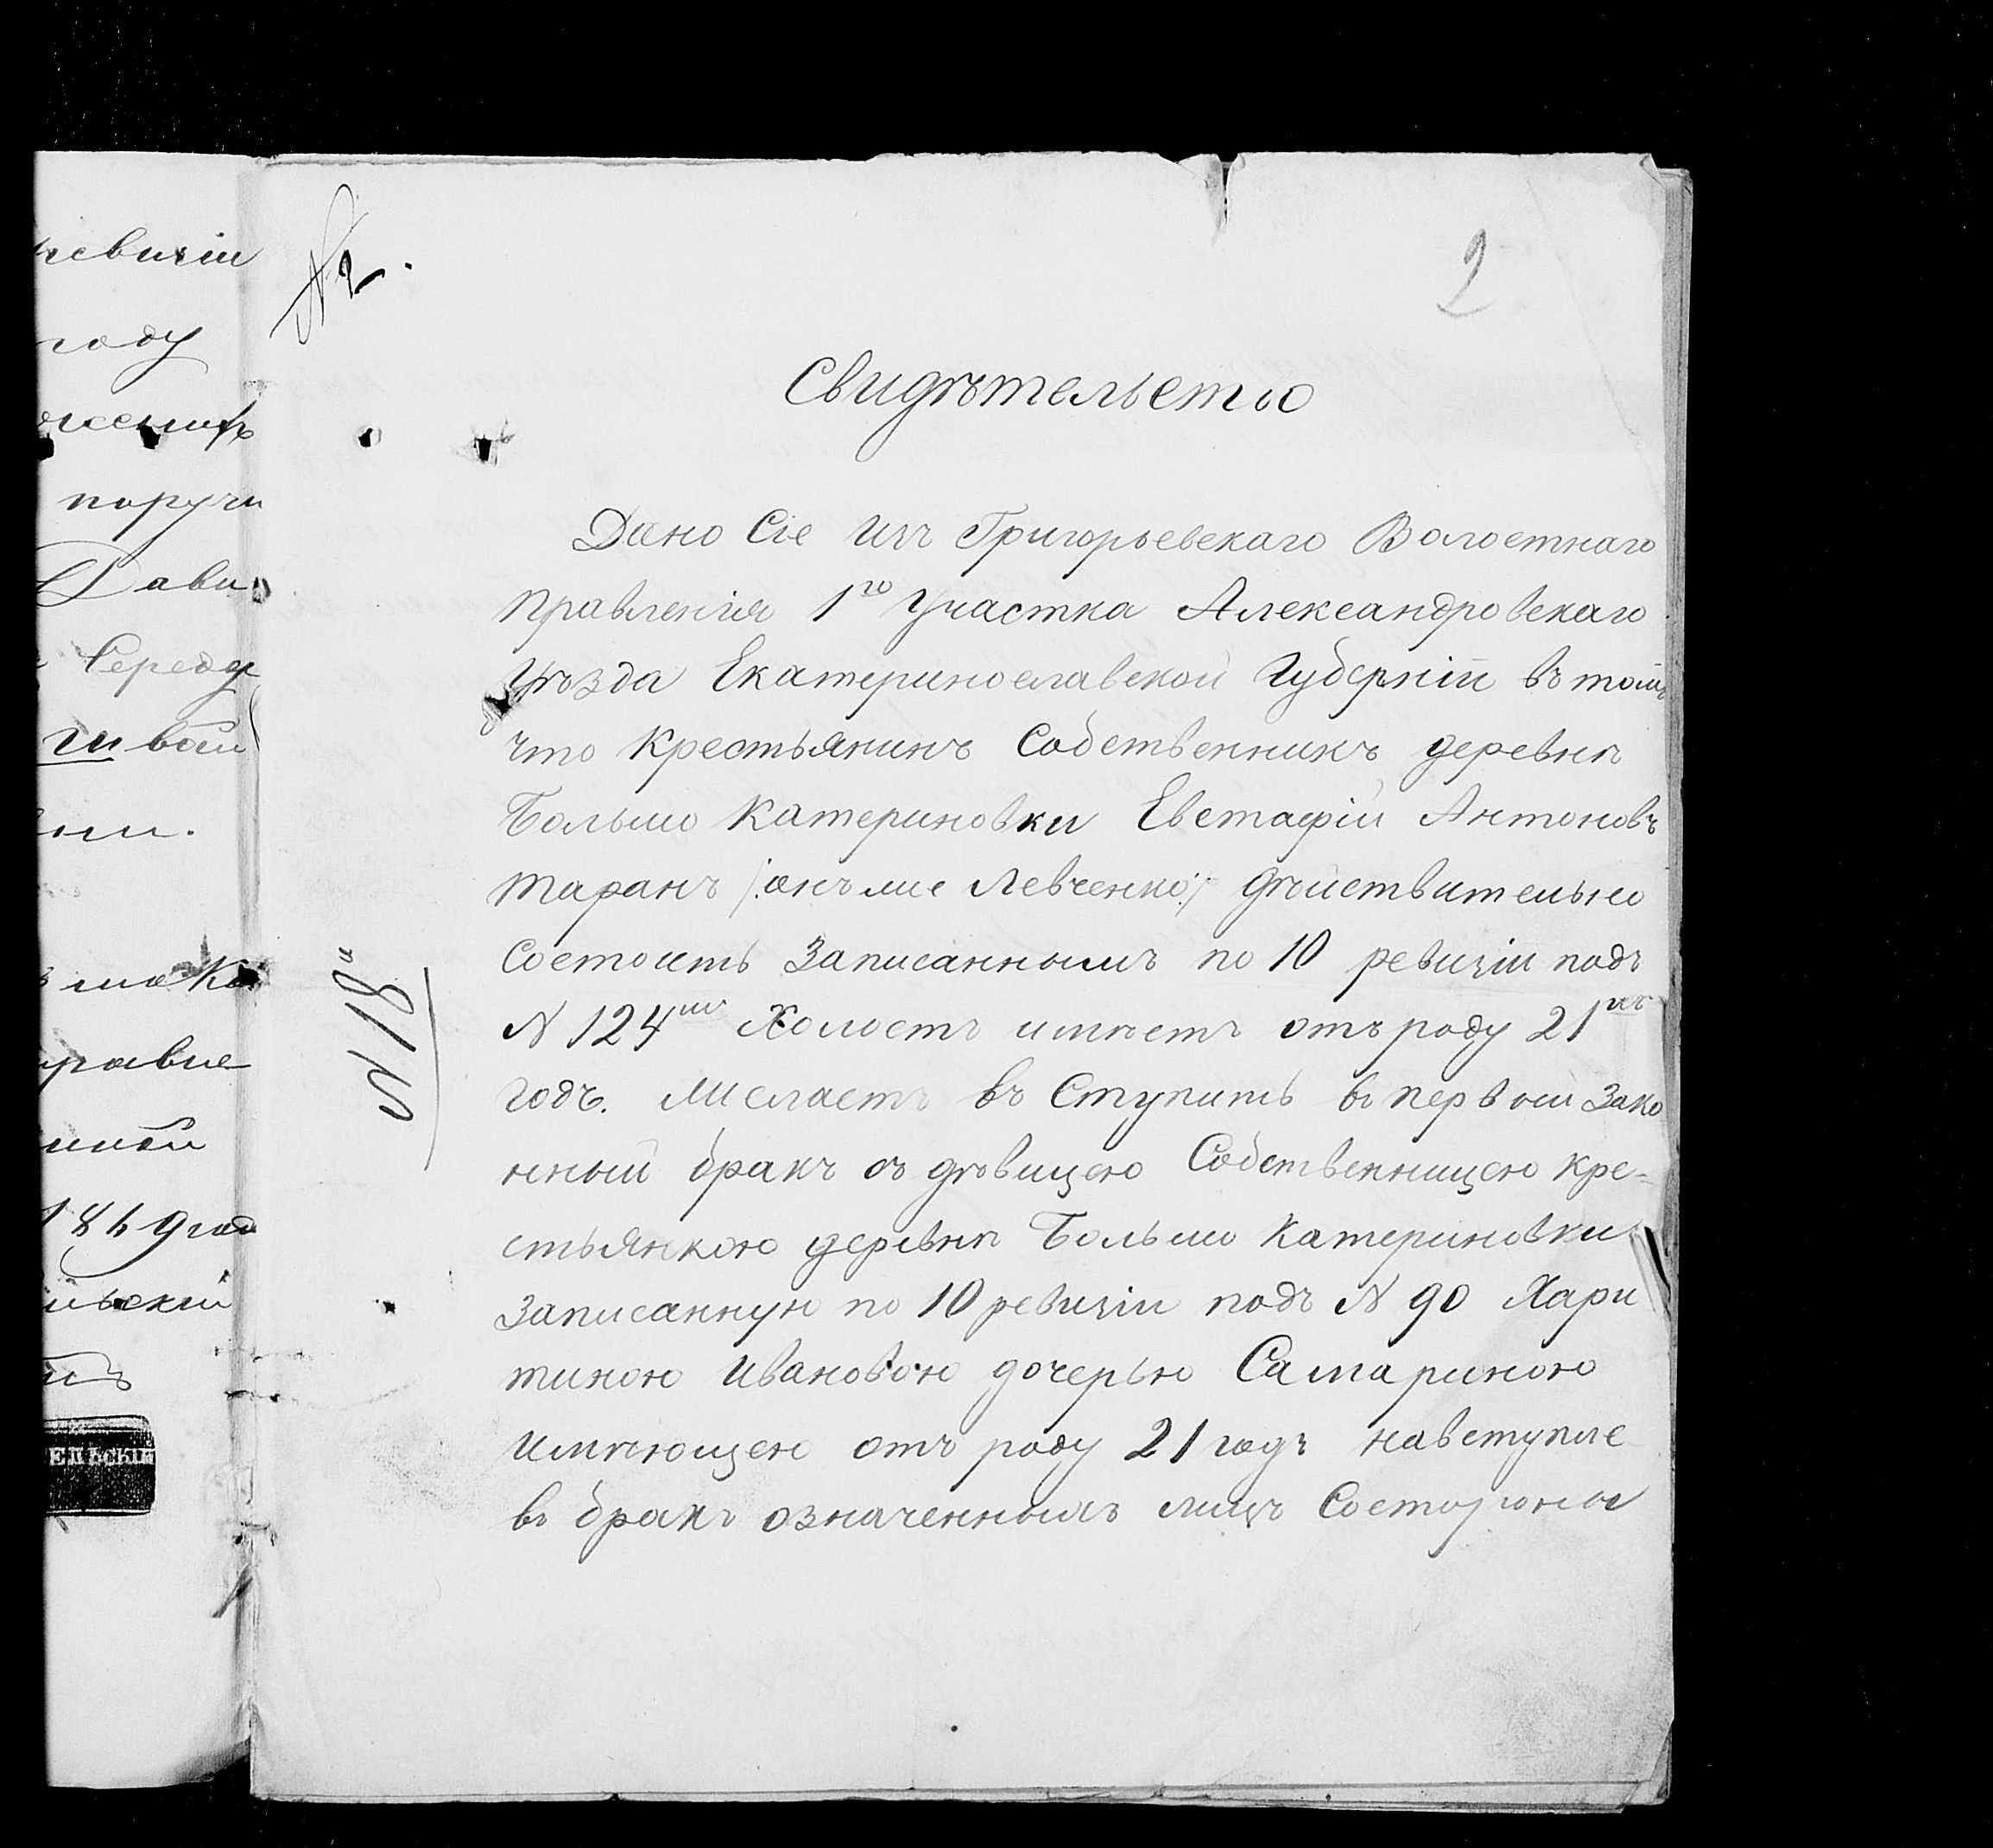 ревизіи
году
поручи
Дави
Середе
вой
правле
1869 год
ЕЛЬСКІЙ
№ 2.
2
Свидѣтельство
Дано Сіе изъ Григорьевскаго Волостнаго
Правленія 1го Участка Александровскаго
Уѣзда Екатеринославской Губерніи въ томъ
что Крестьянинъ Собственникъ деревни
Большо Катериновки Евстафій Антоновъ
Таранъ /: онъ же Левченко :/ дѣйствительно
Состоитъ Записаннымъ по 10 ревизіи подъ
N 124мъ Холостъ имѣетъ отъ роду 21
годъ. Желаетъ въ Ступить въ первый Зако
нный бракъ съ дѣвицею Собственницею кре-
стьянкою деревни Больше Катериновки
Записанную по 10 ревизіи подъ N 90 Хари
тиною Ивановою дочерью Самариною
Имѣющею отъ роду 21 годъ навступле
въ бракъ означеннымъ лицъ Состороны
N 18й